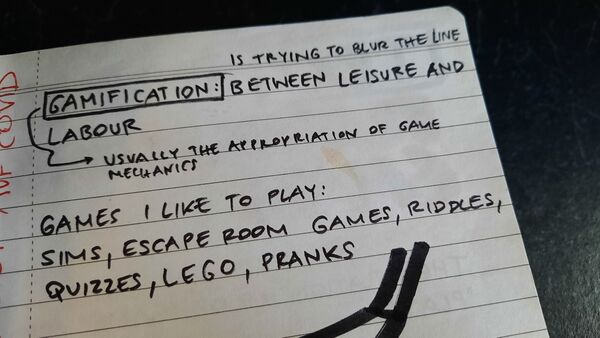 IS TRYING TO BLUR THE LINE
GAMIFICATION: BETWEEN LEISURE AND
LABOUR
USUALLY THE APPROPRIATION OF GAME
MECHANICS
GAMES I LIKE TO PLAY:
SIMS, ESCAPE ROOM GAMES, RIDDLES,
QUIZZES, LEGO, PRANKS
COVID